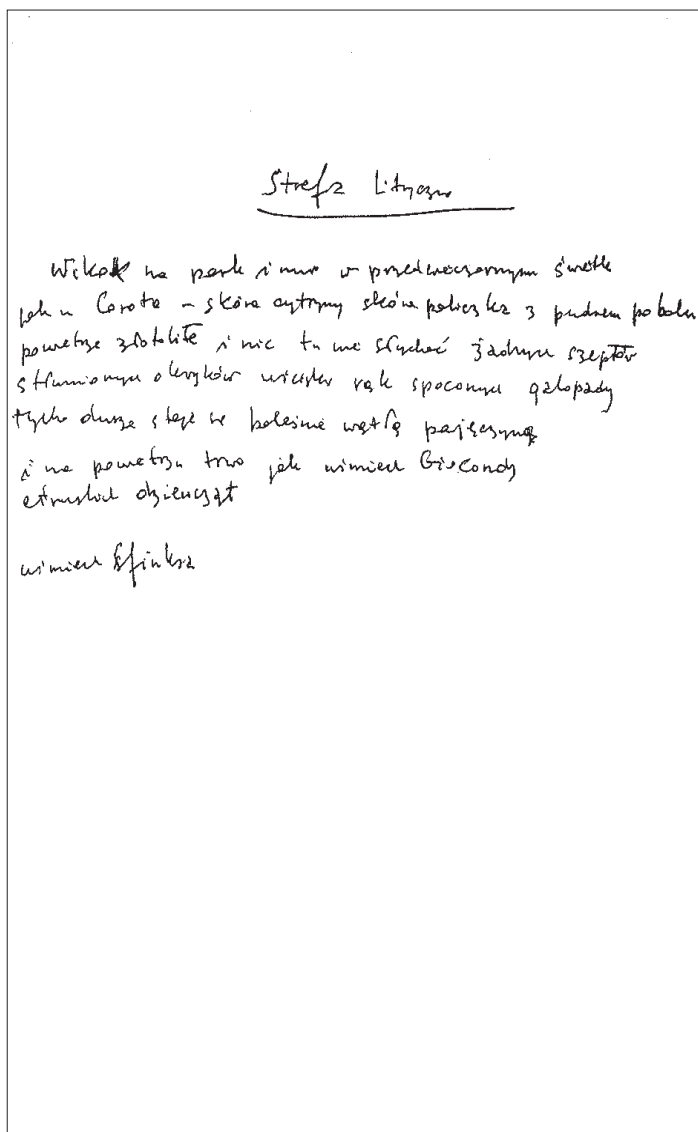 Strefa Liryczna
Widok na park i mur w przedwieczornym świetle
jak u Corota – skóra cytryny skóra policzka z pudrem po balu
powietrze złotolite i nic tu nie słychać żadnych szeptów
stłumionych okrzyków uścisków rąk spoconych galopady
tylko dusza staje się boleśnie wątłą pajęczyną
i na powietrzu trwa jak uśmiech Giocondy
etruskich dziewcząt
uśmiech Sfinksa